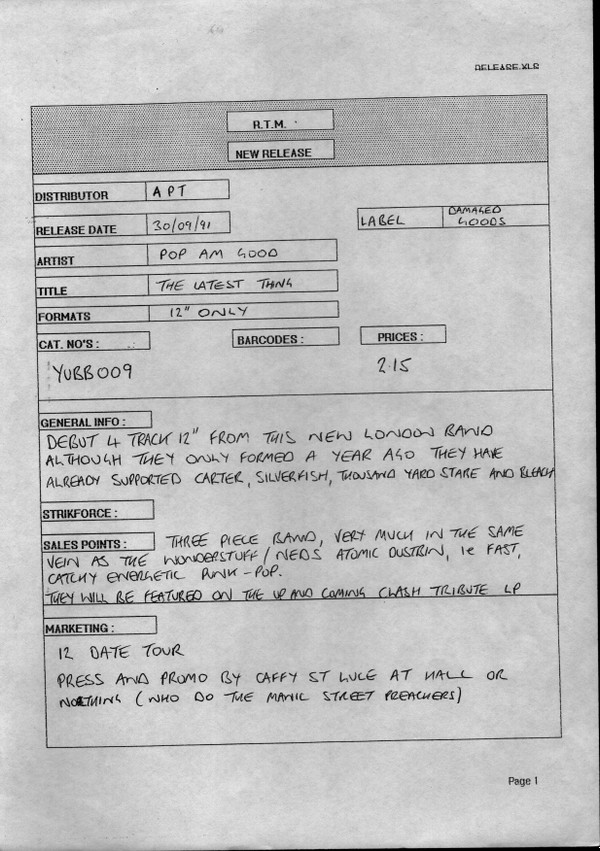 RELEASE.XLS
R.T.M.
NEW RELEASE
DISTRIBUTOR APT
RELEASE DATE 30/09/91 LABEL DAMAGED GOODS
ARTIST POP AM GOOD
TITLE THE LATEST THING
FORMATS 12" ONLY
CAT. NO'S : BARCODES : PRICES :
YUBB009 2.15
GENERAL INFO :
DEBUT 4 TRACK 12" FROM THIS NEW LONDON BAND
ALTHOUGH THEY ONLY FORMED A YEAR AGO THEY HAVE
ALREADY SUPPORTED CARTER, SILVERFISH, THOUSAND YARD STARE AND BLEACH
STRIKFORCE :
SALES POINTS : THREE PIECE BAND, VERY MUCH IN THE SAME
VEIN AS THE WONDERSTUFF/NEDS ATOMIC DUSTBIN, ie FAST,
CATCHY ENERGETIC PUNK-POP.
THEY WILL BE FEATURED ON THE UP AND COMING CLASH TRIBUTE LP
MARKETING :
12 DATE TOUR
PRESS AND PROMO BY CAFFY ST LUCE AT HALL OR
NOTHING (WHO DO THE MANIC STREET PREACHERS)
Page 1